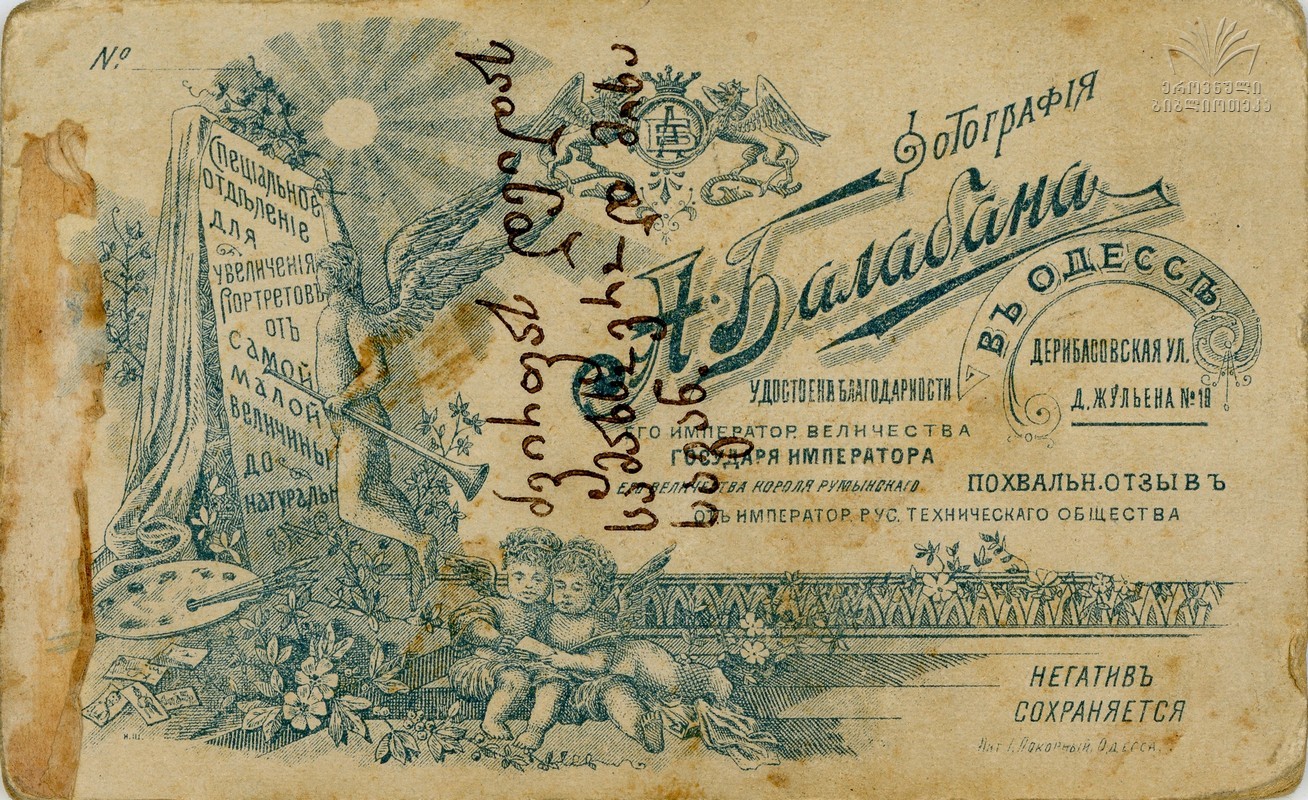 №
ეროვნული
ბიბლიოთეკა
Фотографія
А. Балабана
ВЪ ОДЕССѢ
ДЕРИБАСОВСКАЯ УЛ.
Д. ЖУЛЬЕНА № 19
Спеціальное
отдѣленіе
для
увеличенія
Портретовъ
отъ
самой
малой
величины
до
натуральн
УДОСТОЕНА БЛАГОДАРНОСТИ
ЕГО ИМПЕРАТОР. ВЕЛИЧЕСТВА
ГОСУДАРЯ ИМПЕРАТОРА
ЕГО ВЕЛИЧЕСТВА КОРОЛЯ РУМЫНСКАГО
ПОХВАЛЬН. ОТЗЫВЪ
ОТЪ ИМПЕРАТОР. РУС. ТЕХНИЧЕСКАГО ОБЩЕСТВА
НЕГАТИВЪ
СОХРАНЯЕТСЯ
Лит. І. Покорный, Одесса.